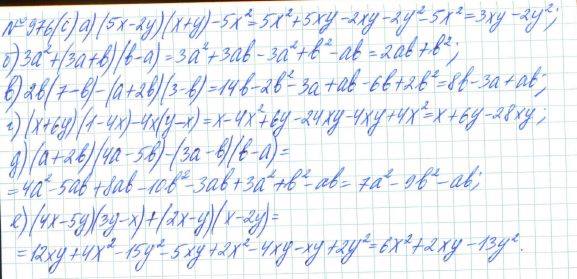 №976(с) а) (5x-2y)(x+y)-5x²=5x²+5xy-2xy-2y²-5x²=3xy-2y²;
б) 3a²+(3a+b)(b-a)=3a²+3ab-3a²+b²-ab=2ab+b²;
в) 2b(7-b)-(a+2b)(3-b)=14b-2b²-3a+ab-6b+2b²=8b-3a+ab;
г) (x+6y)(1-4x)-4x(y-x)=x-4x²+6y-24xy-4xy+4x²=x+6y-28xy;
д) (a+2b)(4a-5b)-(3a-b)(b-a)=
=4a²-5ab+8ab-10b²-3ab+3a²+b²-ab=7a²-9b²-ab;
е) (4x-5y)(3y-x)+(2x-y)(x-2y)=
=12xy+4x²-15y²-5xy+2x²-4xy-xy+2y²=6x²+2xy-13y².